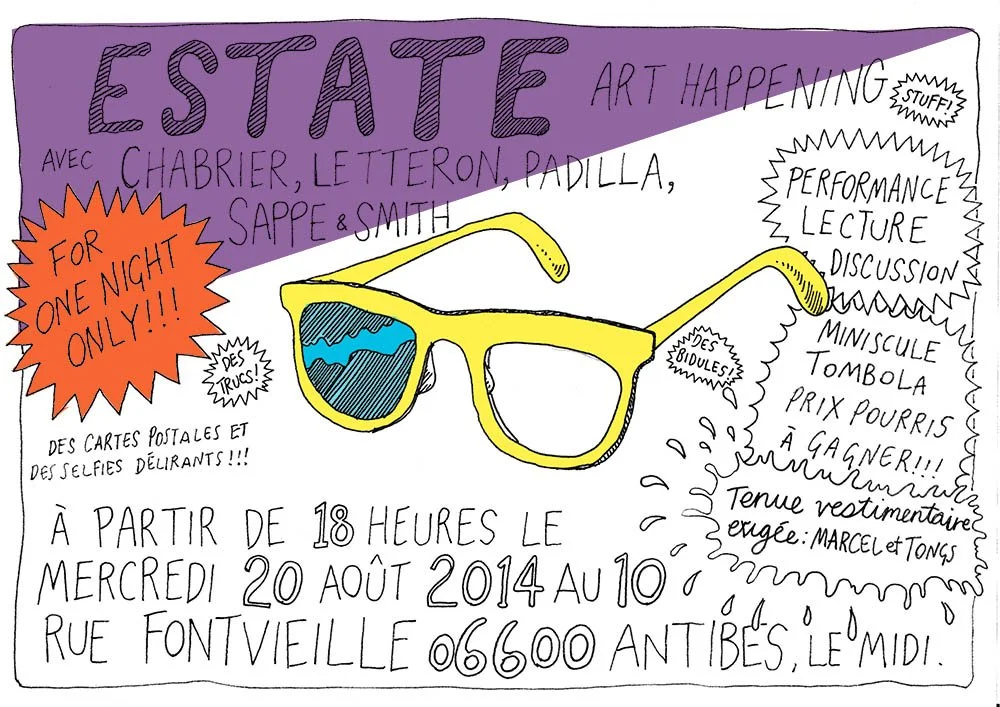 ESTATE ART HAPPENING
STUFF!
AVEC CHABRIER, LETTERON, PADILLA,
SAPPE & SMITH
FOR
ONE NIGHT
ONLY!!!
PERFORMANCE
LECTURE
DISCUSSION
DES
TRUCS!
DES
BIDULES!
MINISCULE
TOMBOLA
PRIX POURRIS
À GAGNER!!!
DES CARTES POSTALES ET
DES SELFIES DÉLIRANTS!!!
Tenue vestimentaire
exigée: MARCEL et TONGS
À PARTIR DE 18 HEURES LE
MERCREDI 20 AOÛT 2014 AU 10
RUE FONTVIEILLE 06600 ANTIBES, LE MIDI.